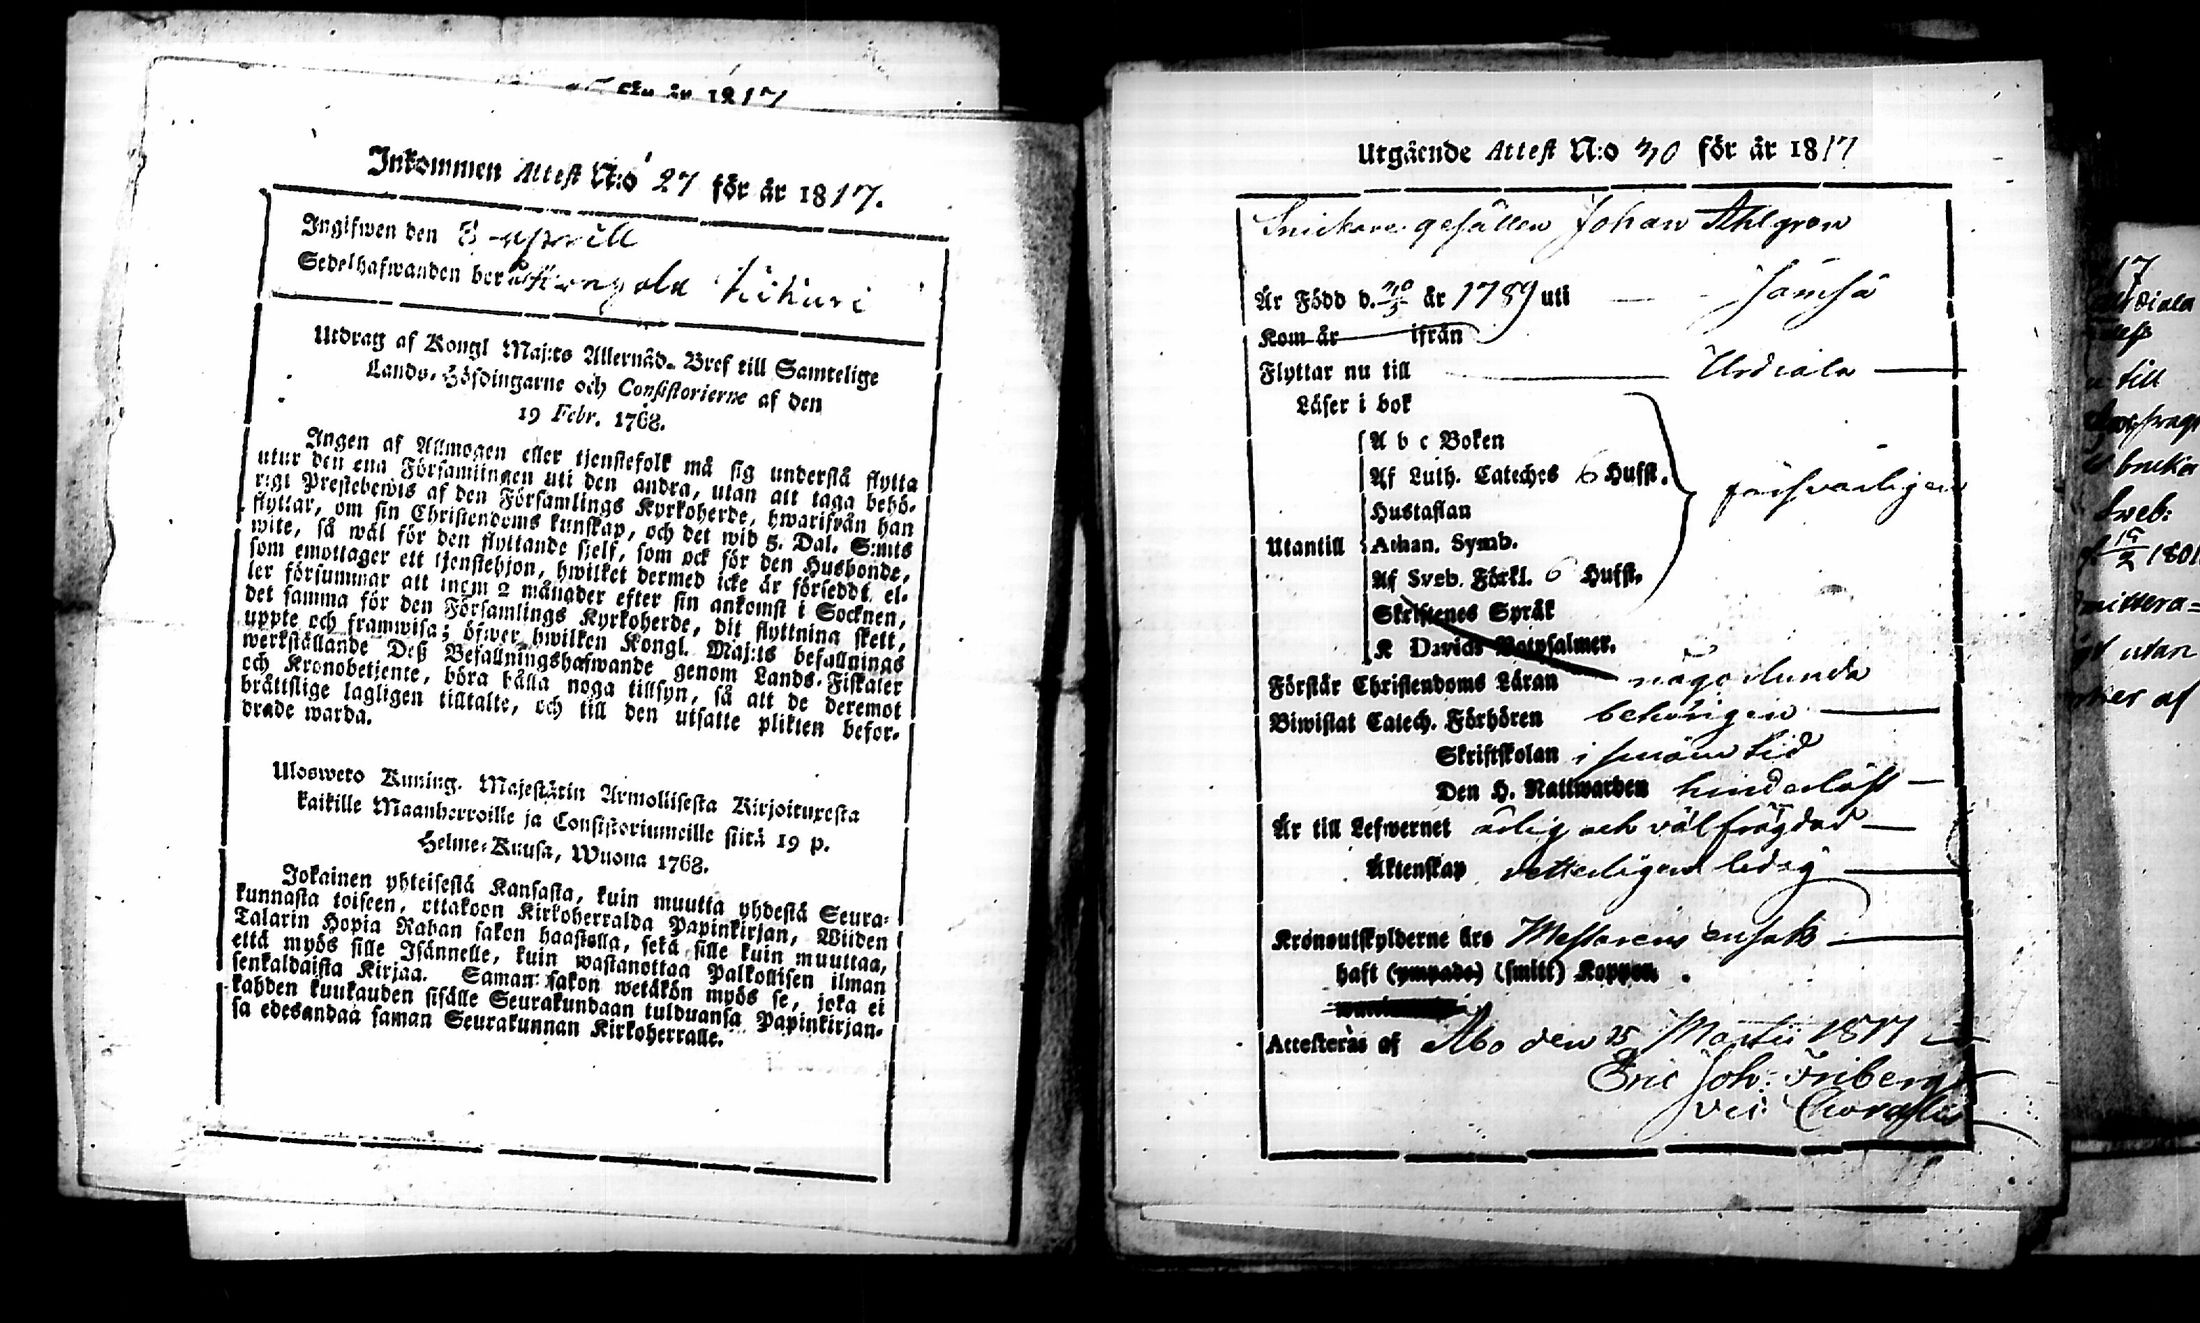 för år 1817
Inkommen Attest N:o 27 för år 1817.
Ingifwen den 8 april
Sedelhafwanden ber
Utdrag af Kongl Maj:ts Allernåd. Bref till Samtelige
Lands-Höfdingarne och Consistorierne af den
19 Febr. 1768.
Ingen af Allmogen eller tjenstefolk må sig understå flytta
utur den ena Församlingen uti den andra, utan att taga behö-
rigt Prestebewis af den Församlings Kyrkoherde, hwarifrån han
flyttar, om sin Christendoms kunskap, och det wid 5. Dal. S:mts
wite, så wäl för den flyttande sielf, som ock för den Husbonde,
som emottager ett tjenstehjon, hwilket dermed icke är försedt, el-
ler försummar att inom 2 månader efter sin ankomst i Socknen,
det samma för den Församlings Kyrkoherde, dit flyttning skett,
uppte och framwisa; öfwer hwilken Kongl. Maj:ts befallnings
werkställande Deß Befallningshafwande genom Lands-Fiskaler
och Kronobetjente, böra hålla noga tillsyn, så att de deremot
bråttslige lagligen tilltalte, och till den utsatte plikten befor-
drade warda.
Ulosweto Kuning. Majestätin Armollisesta Kirjoituxesta
kaikille Maanherroille ja Consistoriumeille siitä 19 p.
Helme-Kuusa, Wuona 1768.
Jokainen yhteisestä Kansasta, kuin muutta yhdestä Seura-
kunnasta toiseen, ottakoon Kirkoherralda Papinkirjan, Wiiden
Talarin Hopia Rahan sakon haastolla, sekä sille kuin muuttaa,
että myös sille Isännelle, kuin wastanottaa Palkollisen ilman
senkaldaista Kirjaa. Saman sakon wetäkön myös se, joka ei
kahden kuukauden sisälle Seurakundaan tulduansa Papinkirjan-
sa edesandaa saman Seurakunnan Kirkoherralle.
Utgående Attest N:o 30 för år 1817
Snickare gesällen Johan Ahlgren
Är Född d. 30/5 år 1789 uti Jämsä
Kom år ifrån
Flyttar nu till Urdiala
Läser i bok
A b c Boken
Af Luth. Cateches 6 Hufst.
Hustaflan
försvarligen
Utantill Athan. Symb.
Af Sveb. Förkl. 6 Hufst.
Skriftenes Språk
K Davids Botpsalmer.
Förstår Christendoms Läran någorlunda
Biwistat Catech. Förhören behörigen
Skriftskolan i sinom tid
Den H. Nattwarden hinderlöst
Är till Lefwernet ärlig och välfrägdad
Äktenskap vetterligen ledig
Kronoutskylderne års Mästarens ensak
haft (ympade) (smitt) Koppor.
Attesteras af Åbo den 25 Martii 1817
Eric Joh: Friberg
17
till
Sveb:
1801
utan
af